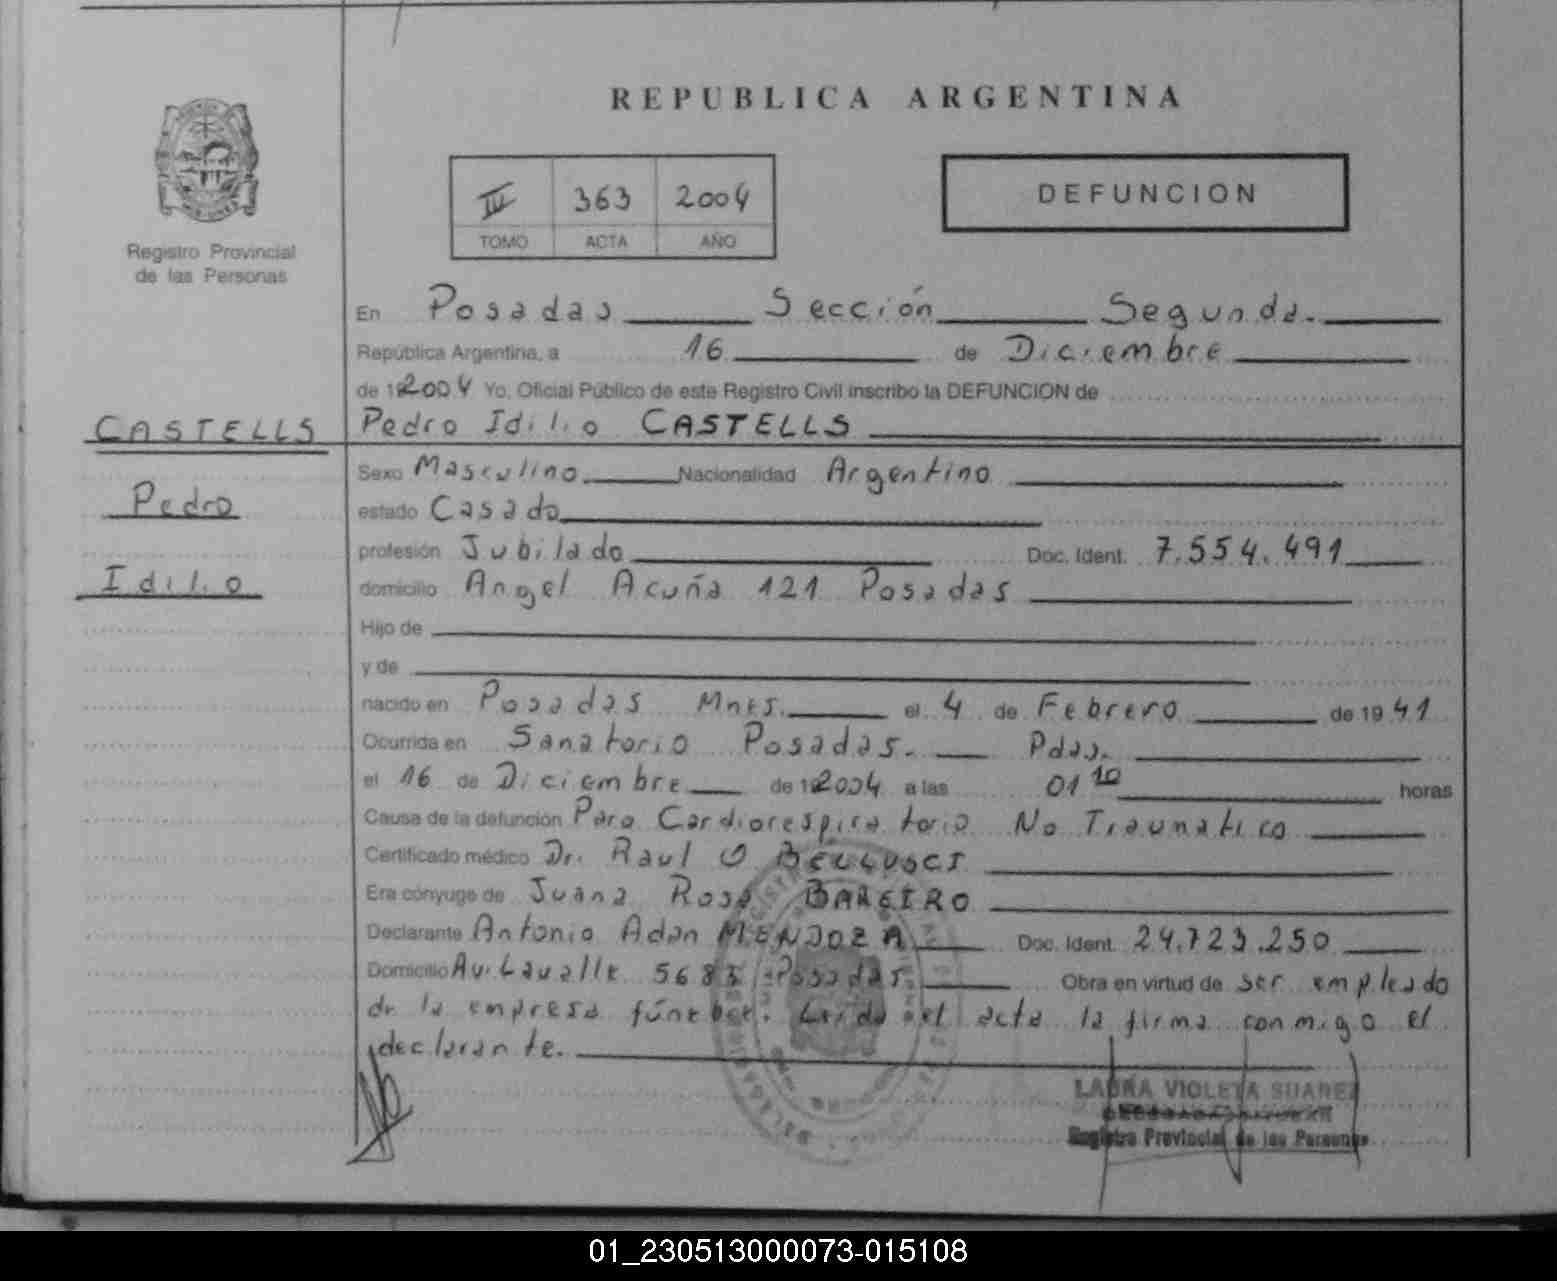 REPUBLICA ARGENTINA
Registro Provincial
de las Personas
363 2004
TOMO ACTA AÑO
DEFUNCION
En Posadas Sección Segunda.
República Argentina, a 16 de Diciembre
de 2004 Yo, Oficial Público de este Registro Civil inscribo la DEFUNCION de
CASTELLS
Pedro
Idilio
Pedro Idilio CASTELLS
Sexo Masculino Nacionalidad Argentino
estado Casado
profesión Jubilado Doc. Ident. 7.554.491
domicilio Angel Acuña 121 Posadas
Hijo de
y de
nacido en Posadas Mnes. el 4 de Febrero de 1941
Ocurrida en Sanatorio Posadas. Pdas.
el 16 de Diciembre de 2004 a las 01 10 horas
Causa de la defunción Paro Cardiorespiratorio No Traumatico
Certificado médico Dr. Raul O BELLUSCI
Era cónyuge de Juana Rosa BAREIRO
Declarante Antonio Adan MENDOZA Doc. Ident. 24.723.250
Domicilio Av. Lavalle 5683 Posadas. Obra en virtud de ser empleado
de la empresa fúnebre. Leída el acta la firma conmigo el
declarante.
LAURA VIOLETA SUAREZ
Registro Provincial de las Personas
01_230513000073-015108